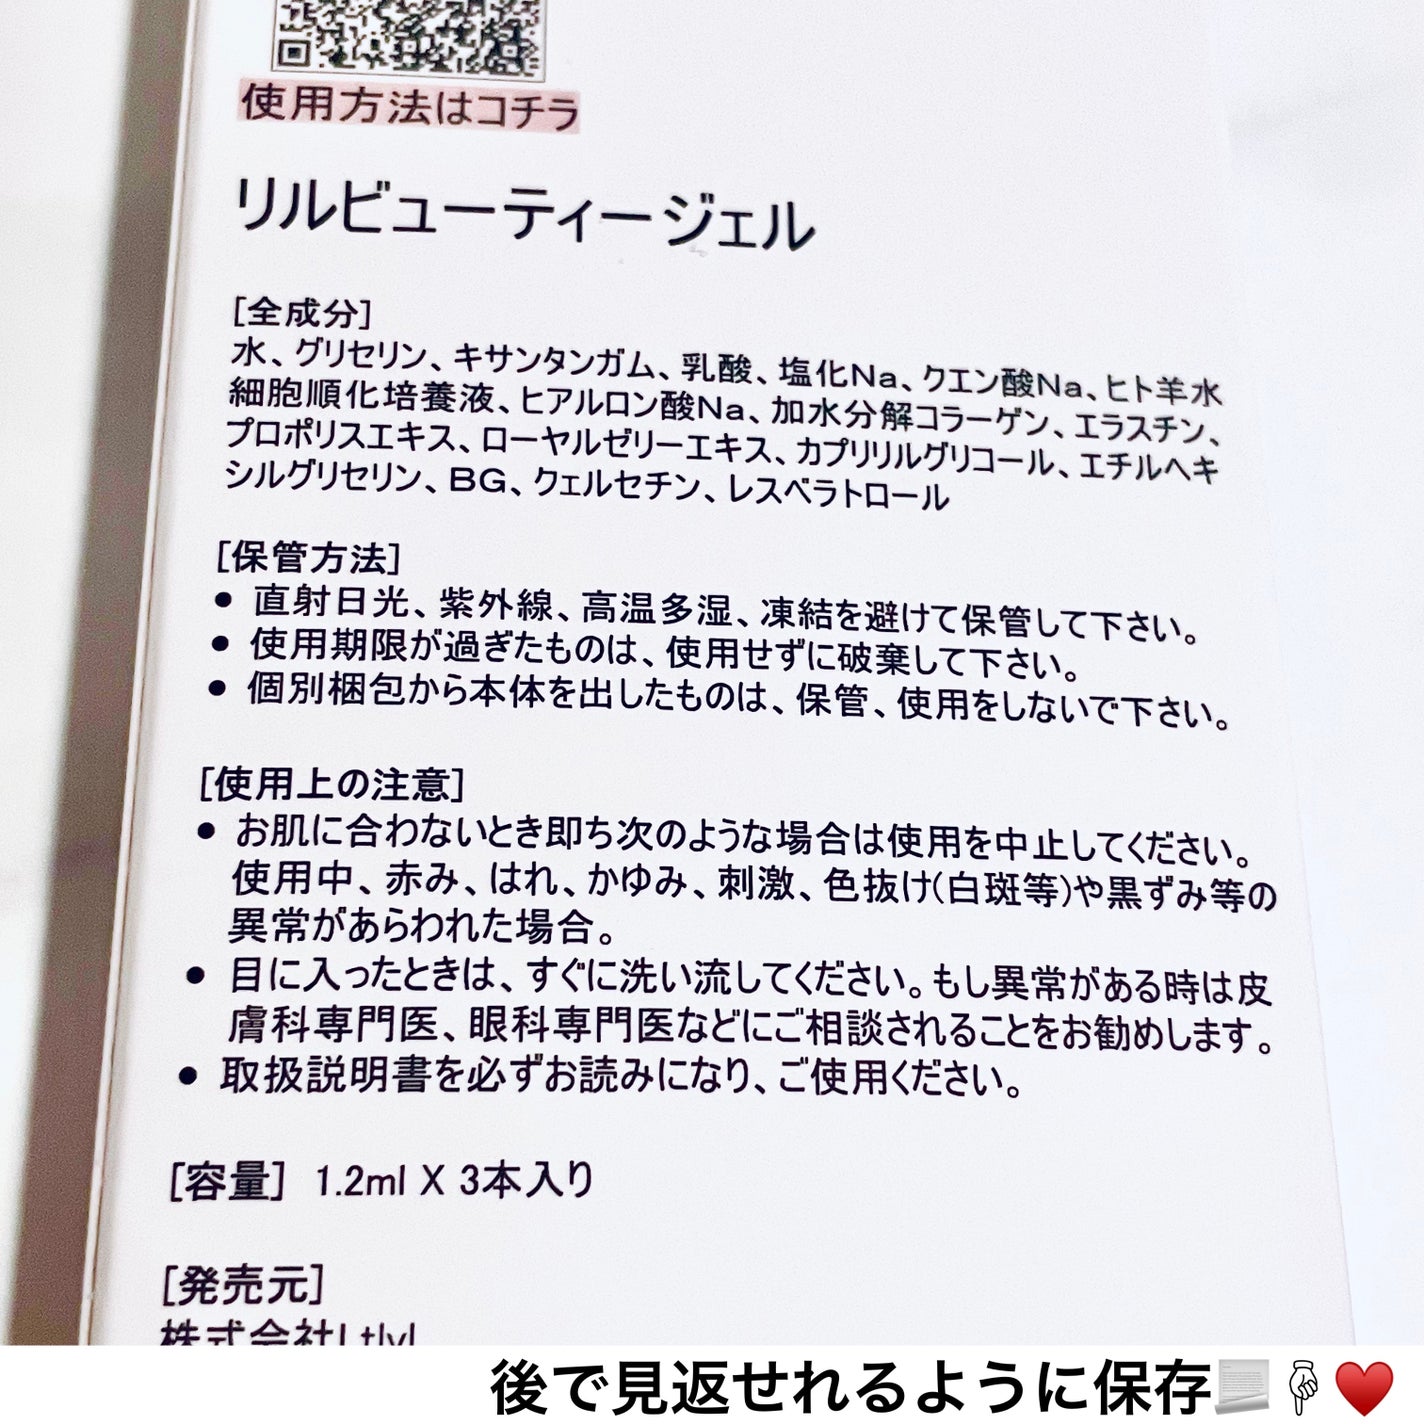 使用方法はコチラ
リルビューティージェル
[全成分]
水、グリセリン、キサンタンガム、乳酸、塩化Na、クエン酸Na、ヒト羊水
細胞順化培養液、ヒアルロン酸Na、加水分解コラーゲン、エラスチン、
プロポリスエキス、ローヤルゼリーエキス、カプリリルグリコール、エチルヘキ
シルグリセリン、BG、クェルセチン、レスベラトロール
[保管方法]
● 直射日光、紫外線、高温多湿、凍結を避けて保管して下さい。
● 使用期限が過ぎたものは、使用せずに破棄して下さい。
● 個別梱包から本体を出したものは、保管、使用をしないで下さい。
[使用上の注意]
● お肌に合わないとき即ち次のような場合は使用を中止してください。
使用中、赤み、はれ、かゆみ、刺激、色抜け(白斑等)や黒ずみ等の
異常があらわれた場合。
● 目に入ったときは、すぐに洗い流してください。もし異常がある時は皮
膚科専門医、眼科専門医などにご相談されることをお勧めします。
● 取扱説明書を必ずお読みになり、ご使用ください。
[容量] 1.2ml X 3本入り
[発売元]
株式会社
後で見返せれるように保存📃👇♥️